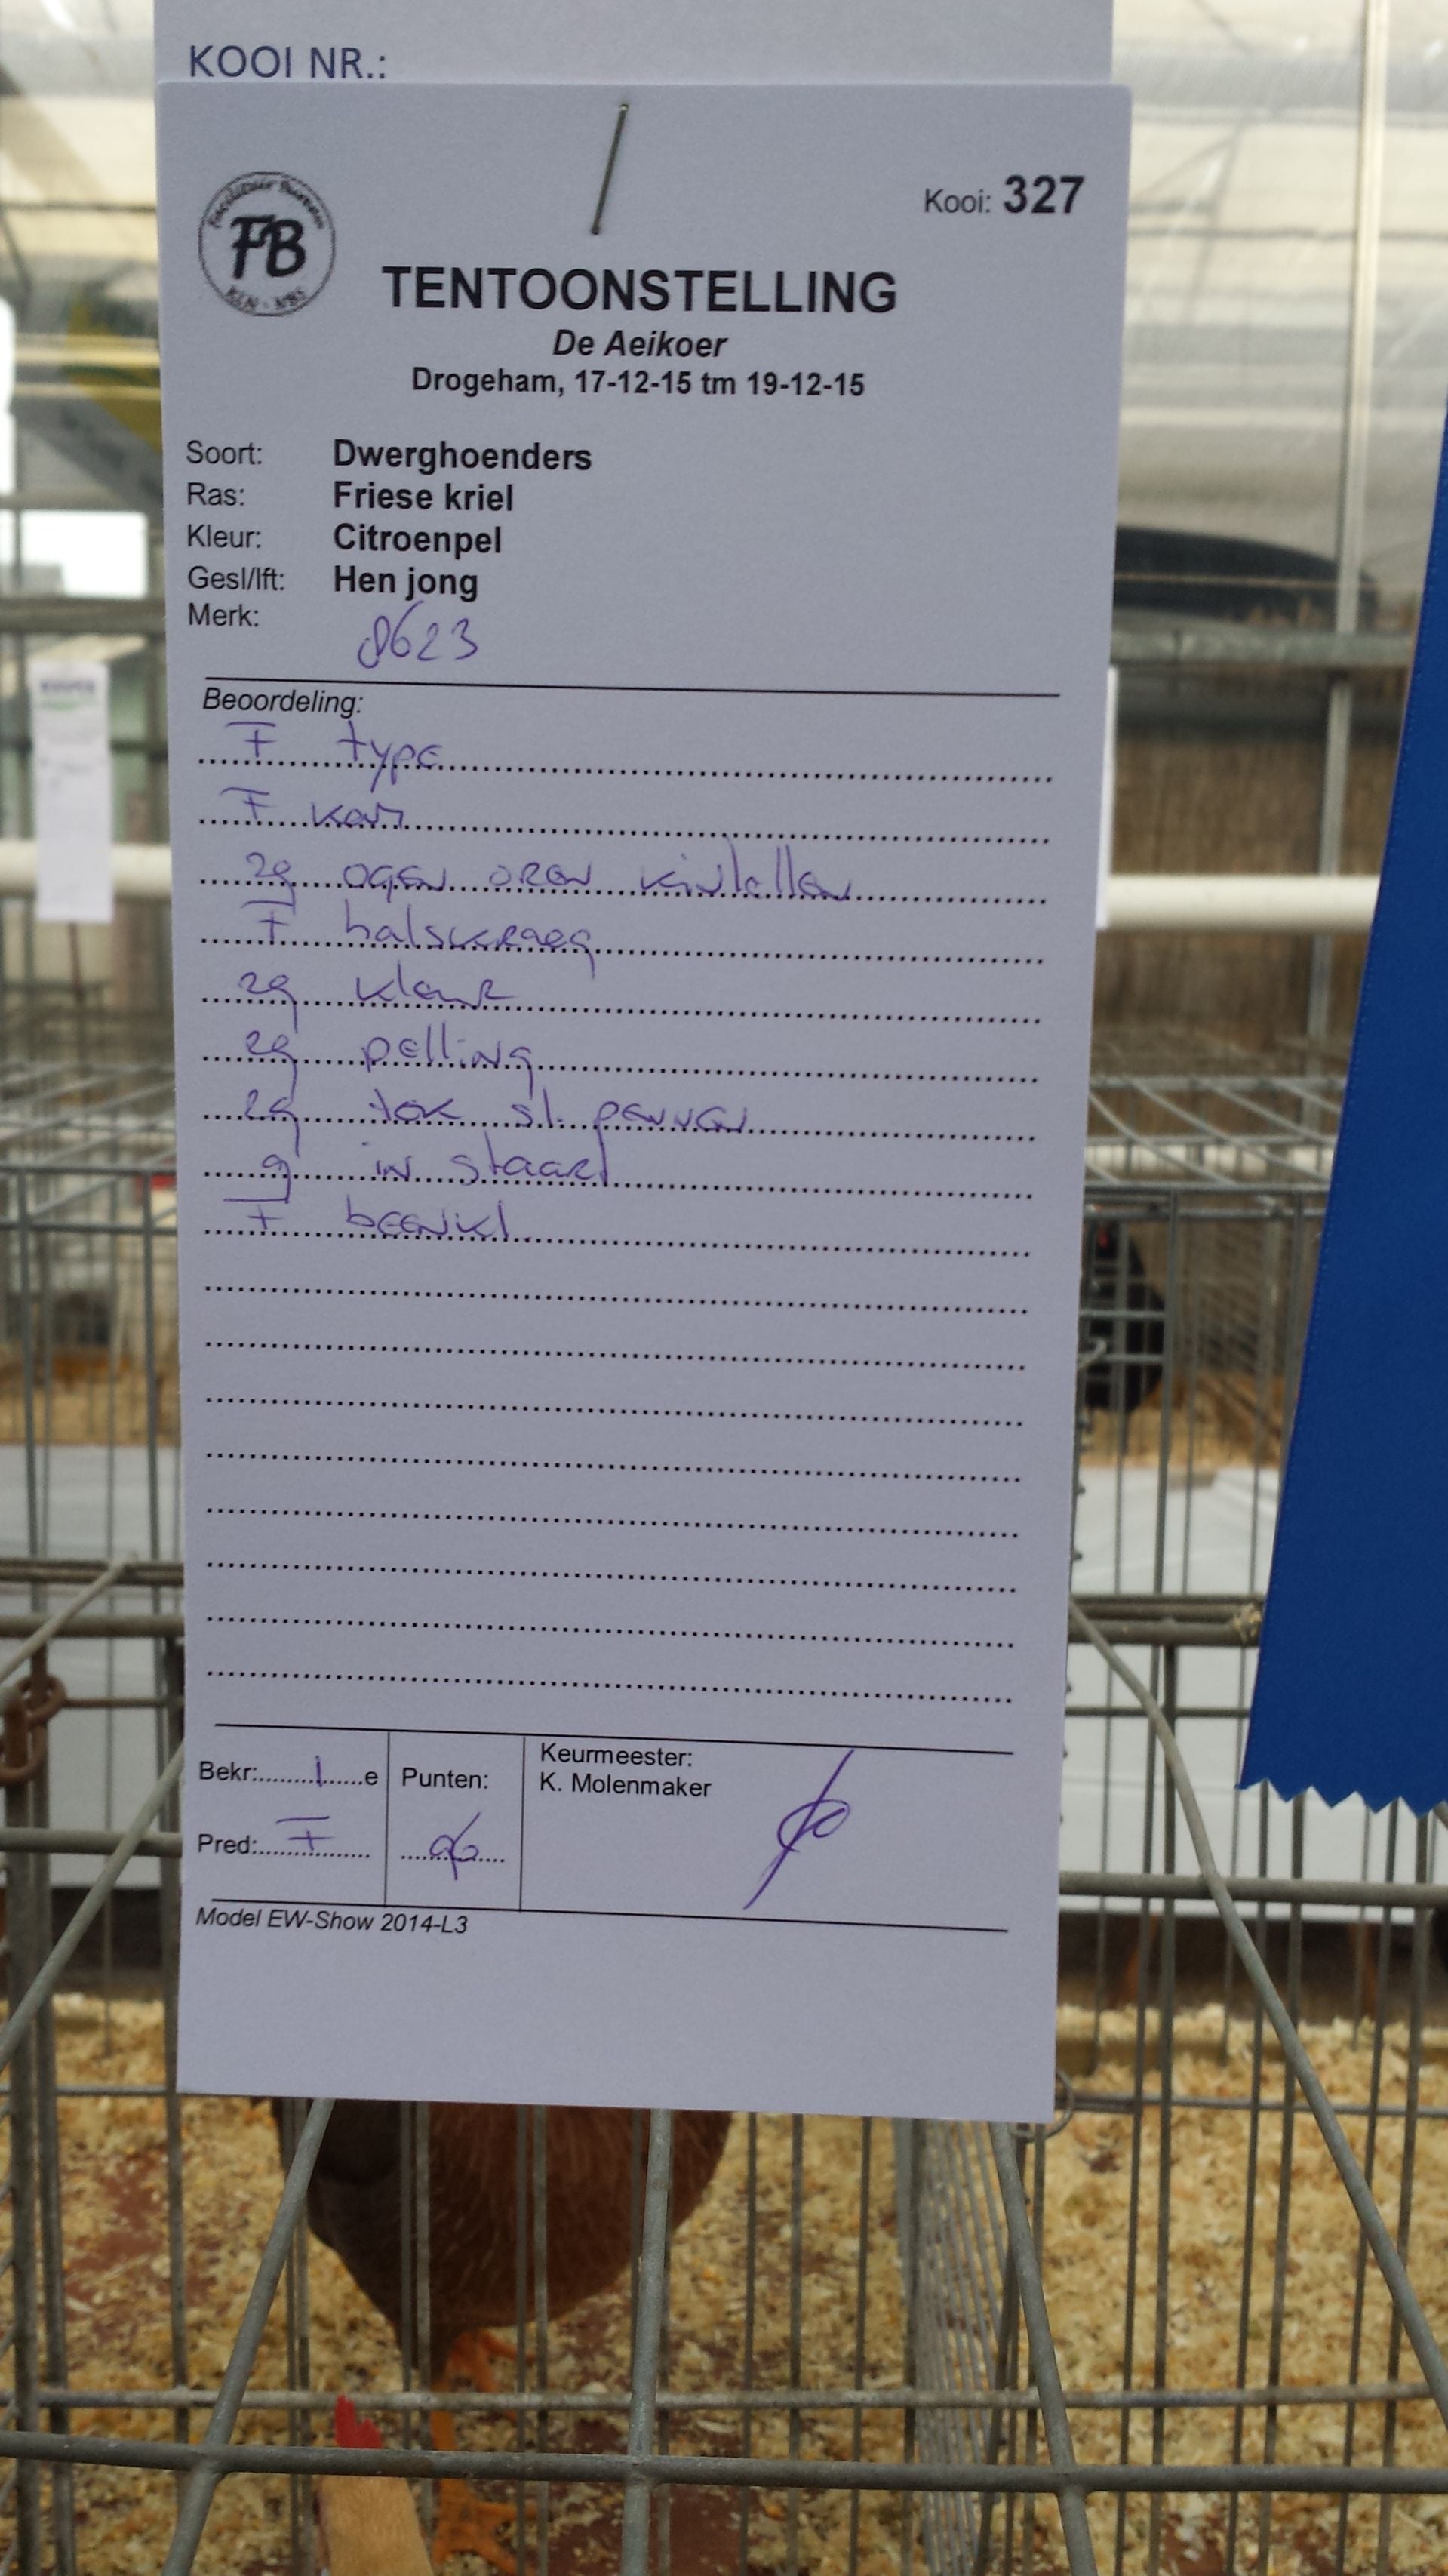 KOOI NR.:
Facilitair Bureau
FB
KLN - NBS
Kooi: 327
TENTOONSTELLING
De Aeikoer
Drogeham, 17-12-15 tm 19-12-15
Soort: Dwerghoenders
Ras: Friese kriel
Kleur: Citroenpel
Gesl/lft: Hen jong
Merk: 8623
Beoordeling:
F type
F kam
zg ogen oren kinlellen
F halskraag
zg kleur
zg pelling
zg tek sl. pennen
g in staart
F beenkl.
Bekr: 1 e
Punten:
Keurmeester:
K. Molenmaker
Pred: F
96
Model EW-Show 2014-L3